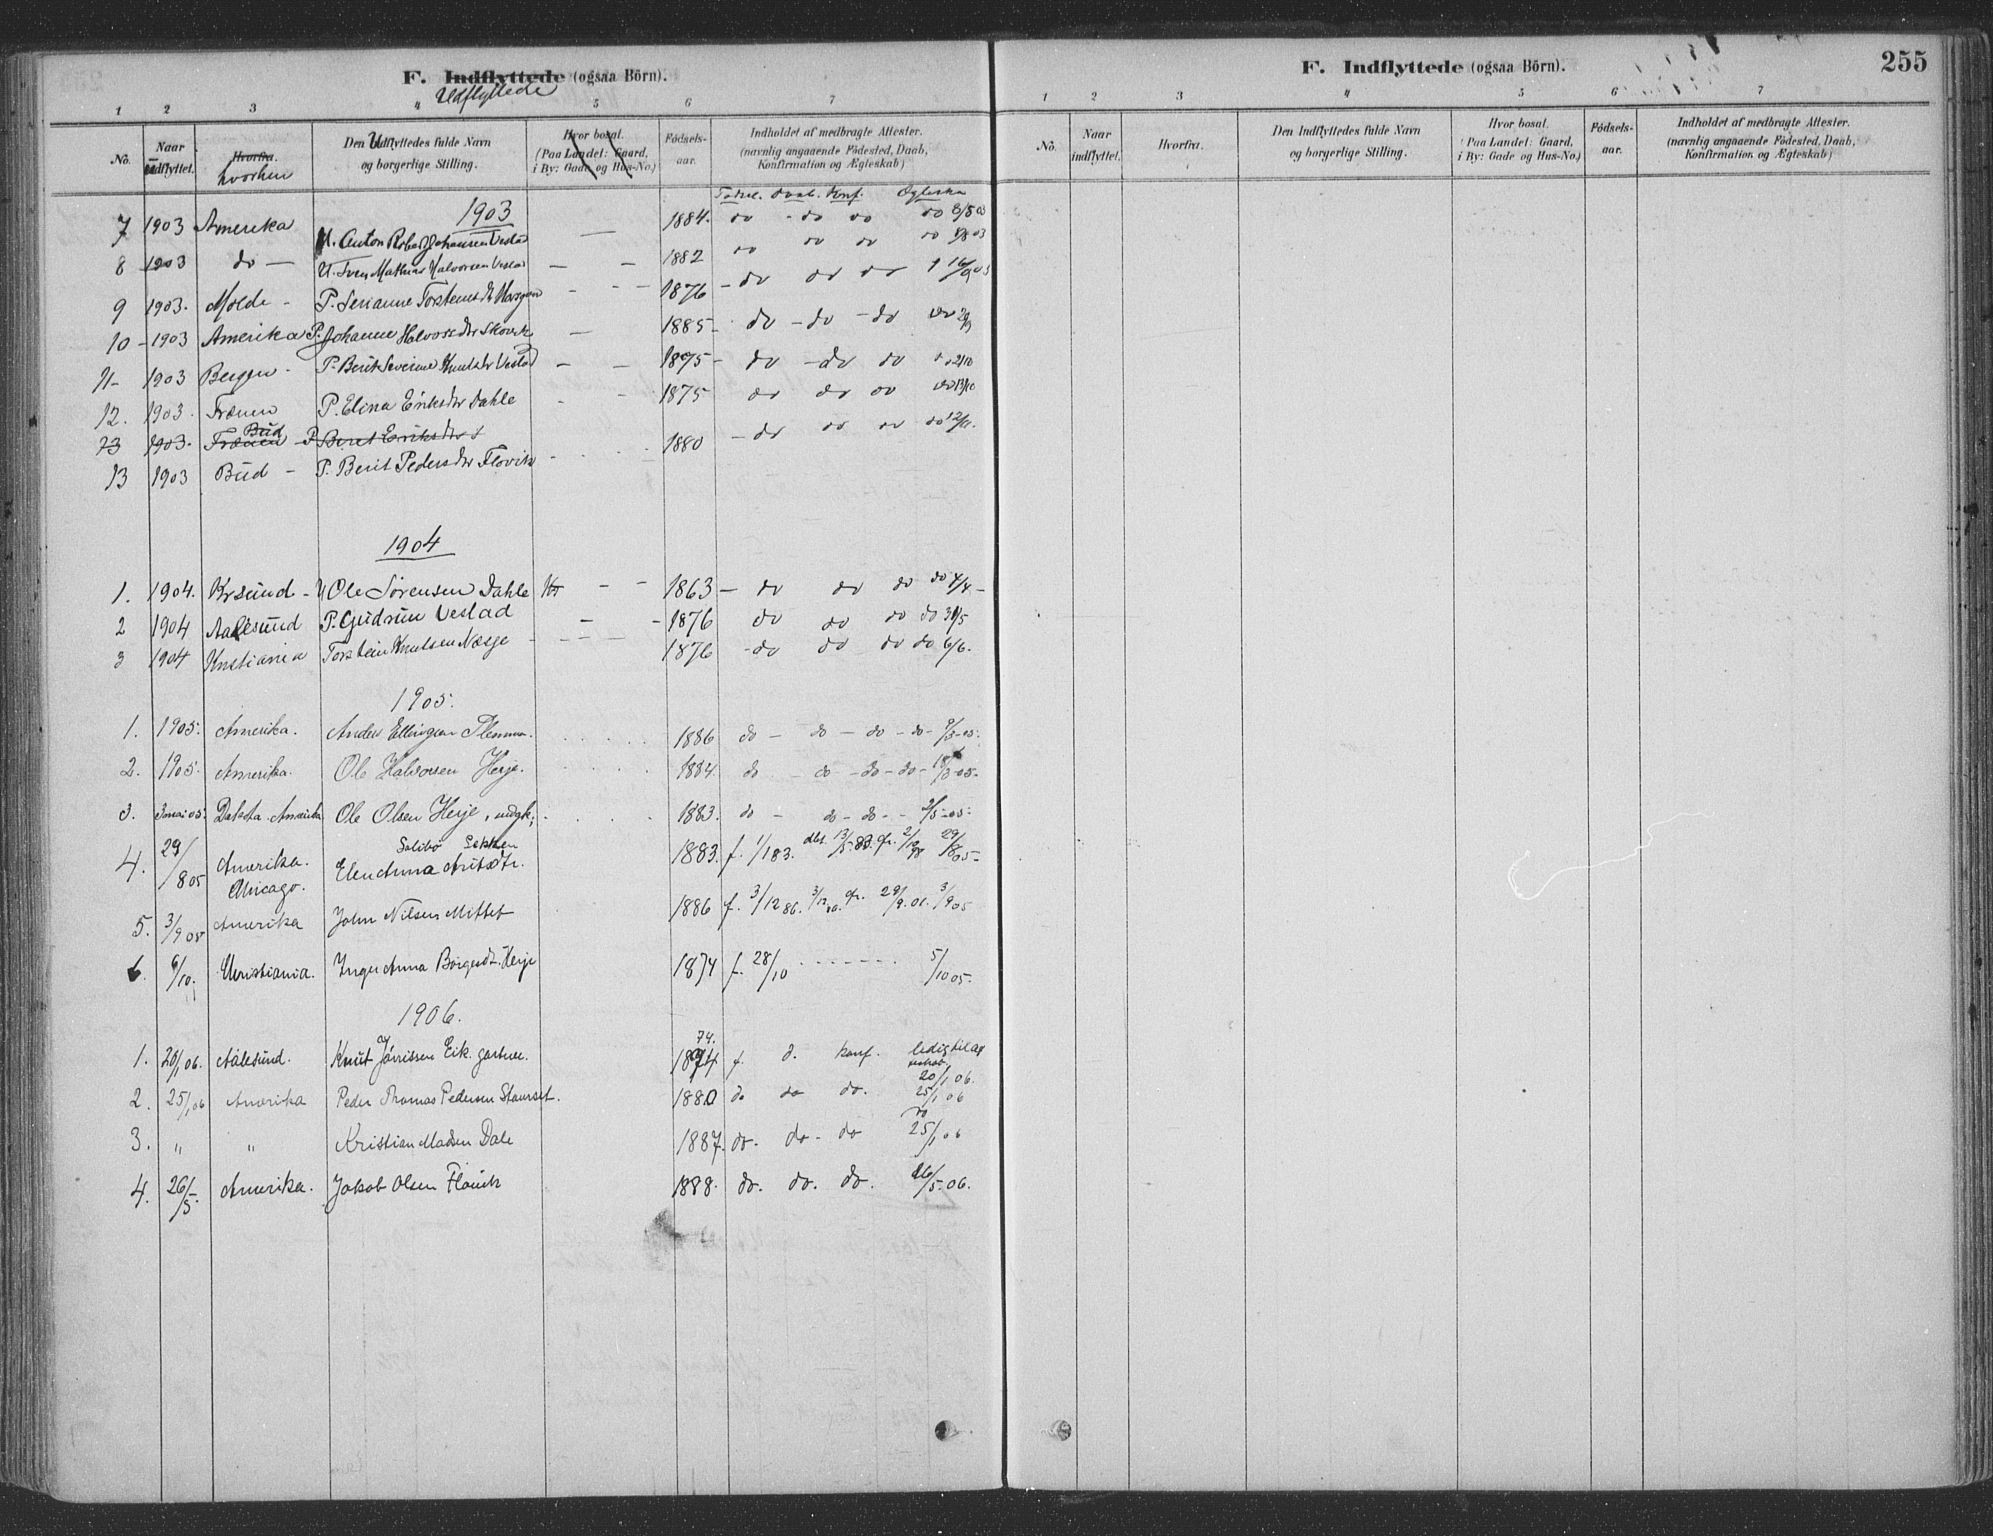 F. Indflyttede (ogsaa Börn).
Udflyttede
1 2 3 4 5 6 7
No.
Naar udflyttet.
Hvorfra.
hvorhen
Den Udflyttedes fulde Navn
og borgerlige Stilling.
Hvor bosat.
(Paa Landet: Gaard,
i By: Gade og Hus-No.)
Födsels-
aar.
Indholdet af medbragte Attester.
(navnlig angaaende Födested, Daab,
Konfirmation og Ægteskab)
1903
7 1903 Amerika U. Anton Johansen Vestad — 1884. do - do do do
8 1903 do — U. Mathias Halvorsen Vestad — — 1882 do do do
9 1903. Molde - P. Serianne 1876 - do do do
10 - 1903 Amerika P. Johanne Halvorsdtr Skovik — 1885 - do - do - do do
11 - 1903 Bergen - P. Berit Severine Knutsdtr Vestad - - 1875 - do - do do
12. 1903. Frænen P. Elina Eriksdtr Dahle - - 1875 do do do do 13/10
13 1903. Frænen Bud P. Beret Eriksdtr 1880 - do do do do 12/11
13 1903 Bud - P. Berit Pedersdtr Flovik
1904
1. 1904. Krsund - Ole Sørensen Dahle - - 1863 - do do do do 4/4 -
2 1904 Aalesund P. Gudrun Vestad - - 1876 do do do do 31/5
3 1904 Kristiania Torstein Knutsen Næsje - - - - 1876 - do do do do 6/6.
1905.
1. 1905. Amerika. Anders Ellingsen 1886 do - do - do - do - 9/3-05.
2. 1905. Amerika. Ole Halvorsen Herje. 1884. do - do - do - do - 18/3-05-
3. 3 mai 05. Dakota Amerika Ole Olsen Herje, 1883. do - do - do - - 2/5-05-
4. 29/8 05 Amerika. Chicago. Elen Anna 1883. f. 1/1 83. dbt. 13/5. 83. 29/8 05-
5. 3/9 05 Amerika John Nilsen Mittet 1886 f. 3/12 86. 29/9. 01. 3/9 05
6. 6/10. Christiania. Inger Anna Herje 1874 f. 28/10 - - - - - - 5/10 05-
1906.
1. 20/1 06. Aalesund. Knut Eik 74. 1874 f d. konf. ledig til æg
teskab
20/1 06.
2. 25/1 06 Amerika Peder Thomas Pedersen 1880 do do do. 25/1 06
3. " " Kristian Madsen Dale 1887. do. do. do do 25/1 06
4. 26/5. Amerika. Jakob Olsen Flovik 1888. do. do. do. 26/5. 06.
F. Indflyttede (ogsaa Börn).
255
1 2 3 4 5 6 7
No.
Naar
indflyttet.
Hvorfra.
Den Indflyttedes fulde Navn
og borgerlige Stilling.
Hvor bosat.
(Paa Landet: Gaard,
i By: Gade og Hus-No.)
Födsels-
aar.
Indholdet af medbragte Attester.
(navnlig angaaende Födested, Daab,
Konfirmation og Ægteskab)